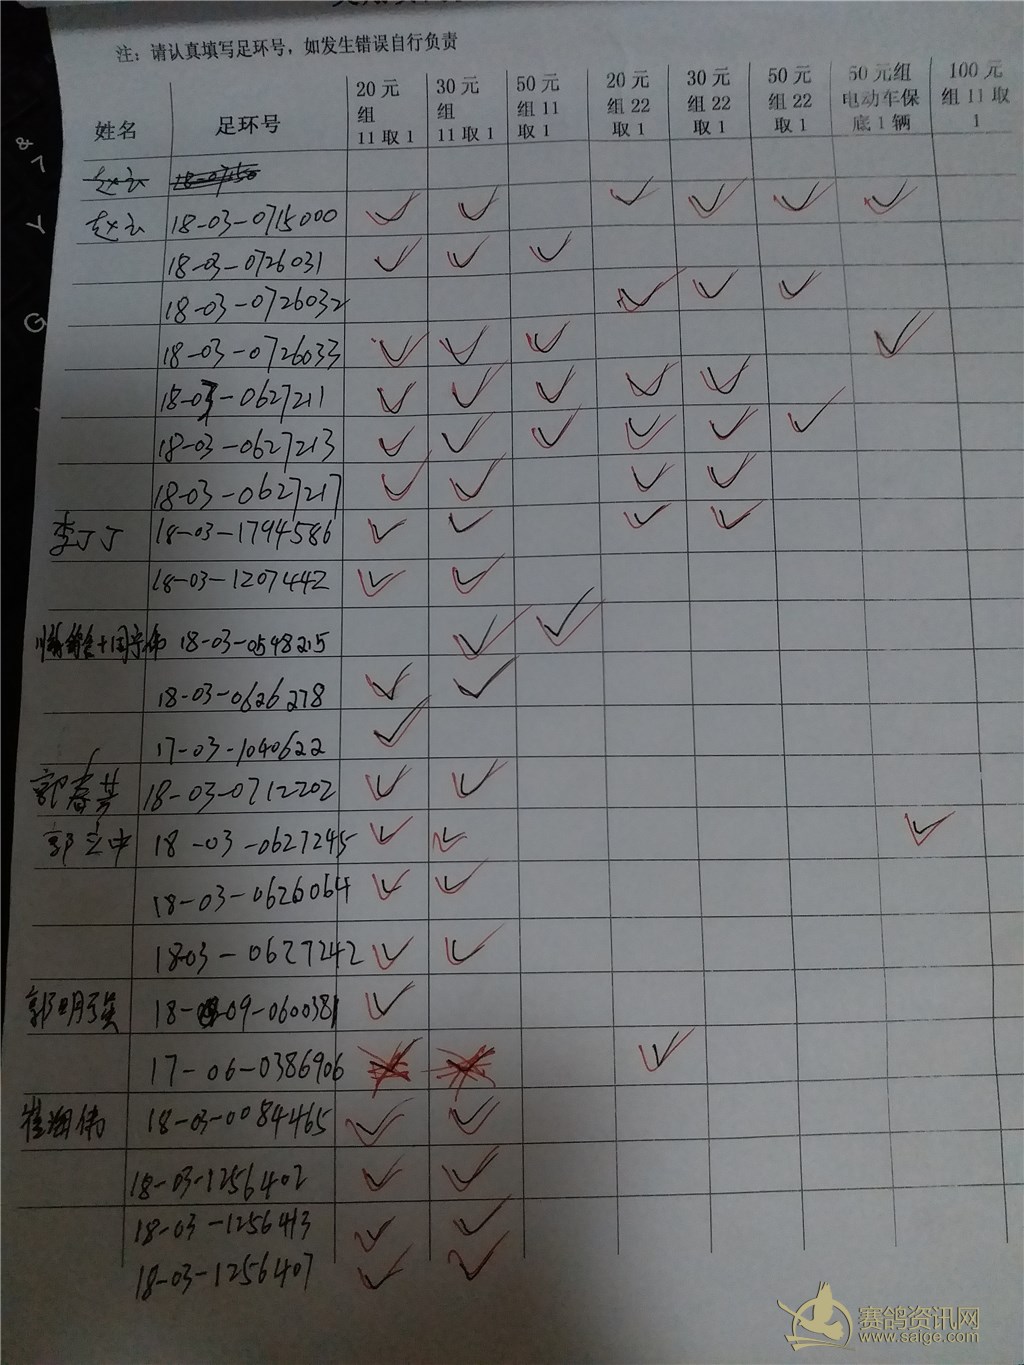 注：请认真填写足环号，如发生错误自行负责
姓名 足环号 20元组11取1 30元组11取1 50元组11取1 20元组22取1 30元组22取1 50元组22取1 50元组电动车保底1辆 100元组11取1
赵云 18-07150
赵云 18-03-0715000 ✓ ✓ ✓ ✓ ✓ ✓
18-03-0726031 ✓ ✓ ✓
18-03-0726032 ✓ ✓ ✓
18-03-0726033 ✓ ✓ ✓ ✓
18-03-0627211 ✓ ✓ ✓ ✓ ✓
18-03-0627213 ✓ ✓ ✓ ✓ ✓ ✓
18-03-0627217 ✓ ✓ ✓ ✓
李丁丁 18-03-1794586 ✓ ✓ ✓ ✓
18-03-1207442 ✓ ✓
18-03-0548215 ✓ ✓
18-03-0626278 ✓ ✓
17-03-1040622 ✓
郭春芳 18-03-0712202 ✓ ✓
郭立中 18-03-0627245 ✓ ✓ ✓
18-03-0626064 ✓ ✓
1803-0627242 ✓ ✓
郭明强 18-09-0600381 ✓
17-06-0386906 ✓
崔翔伟 18-03-0084465 ✓ ✓
18-03-1256402 ✓ ✓
18-03-1256413 ✓ ✓
18-03-1256407 ✓ ✓
赛鸽资讯网
www.saige.com
& 7
Y
G